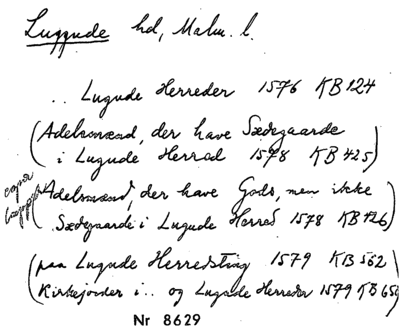 Luggude hd, Malm. l.
.. Lugude Herreder 1576 KB 124
(Adelsmænd, der have Sædegaarde
i Lugude Herred 1578 KB 425)
(Adelsmænd, der have Gods, men ikke
Sædegaarde i Lugude Herred 1578 KB 426)
(paa Lugude Herredsting 1579 KB 562
Kirkejorder i .. og Lugude Herreder 1579 KB 650
Nr 8629